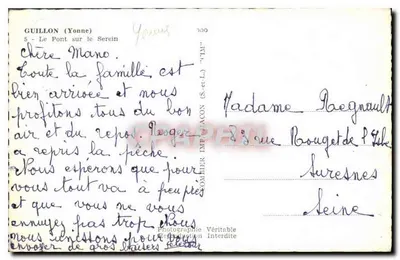 GUILLON (Yonne)
5 - Le Pont sur le Serein
Yonne
Chère Mano.
Toute la famille est
bien arrivée et nous
profitons tous du bon
air et du repos. Roger
a repris la pêche.
Nous espérons que pour
vous tout va à peu près
et que vous ne vous
ennuyez pas trop. Nous
nous unissons pour vous
envoyer de gros baisers
Madame Regnault
rue Rouget de l'Isle
Suresnes
Seine
COMBIER IMP. MACON (S.-et-L.) "CIM"
Photographie Véritable
Reproduction Interdite